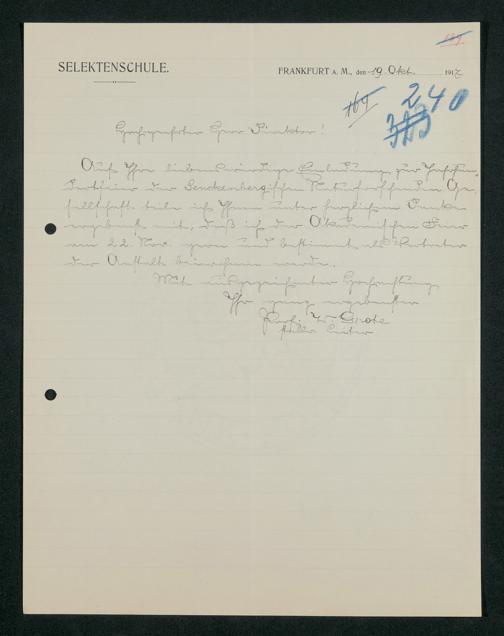 189.
SELEKTENSCHULE.
FRANKFURT A. M., den 19. Okt. 1917
169
240
323
Hochgeehrter Herr Direktor!
Auf Ihre liebenswürdige Einladung zur
der Senckenbergischen Naturforschenden Ge-
sellschaft teile ich Ihnen unter herzlichem Danke
ergebenst mit, daß ich der Akademischen Feier
am 22. Nov. gern und bestimmt als Vertreter
der Anstalt beiwohnen werde.
Mit ausgezeichneter Hochachtung
Ihr ganz ergebenster
Prof. Dr. Grote